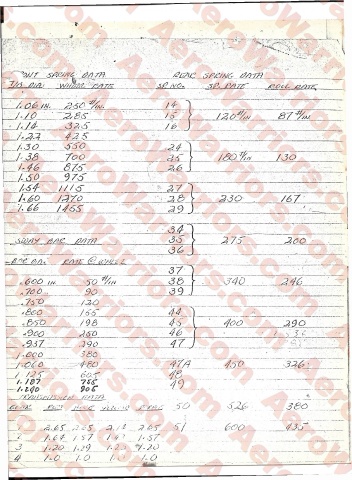 FRONT SPRING DATA REAR SPRING DATA
T/B DIA. WHEEL RATE SP. NO. SP. RATE ROLL RATE
1.06 IN. 250 #/IN 14
1.10 285 15 120 #/IN 87 #/IN
1.14 325 16
1.22 425
1.30 550 24
1.38 700 25 180 #/IN 130
1.46 875 26
1.50 975
1.54 1115 27
1.60 1270 28 230 167
1.66 1465 29
34
SWAY BAR DATA 35 275 200
36
BAR DIA. RATE @ WHEEL
37
.600 IN 50 #/IN 38 340 246
.700 90 39
.750 120
.800 155 44
.850 198 45 400 290
.900 250 46
.937 290 47
1.000 380
1.060 480 47A 450 326
1.125 605 48
1.187 755 49
1.240 906
TRANSMISSION DATA
50 526 380
2.65 2.65 51 600 435
2 1.64 1.57 1.57
3 1.20 1.20
4 1.0 1.0 1.0 1.0
AeroWarriors.com